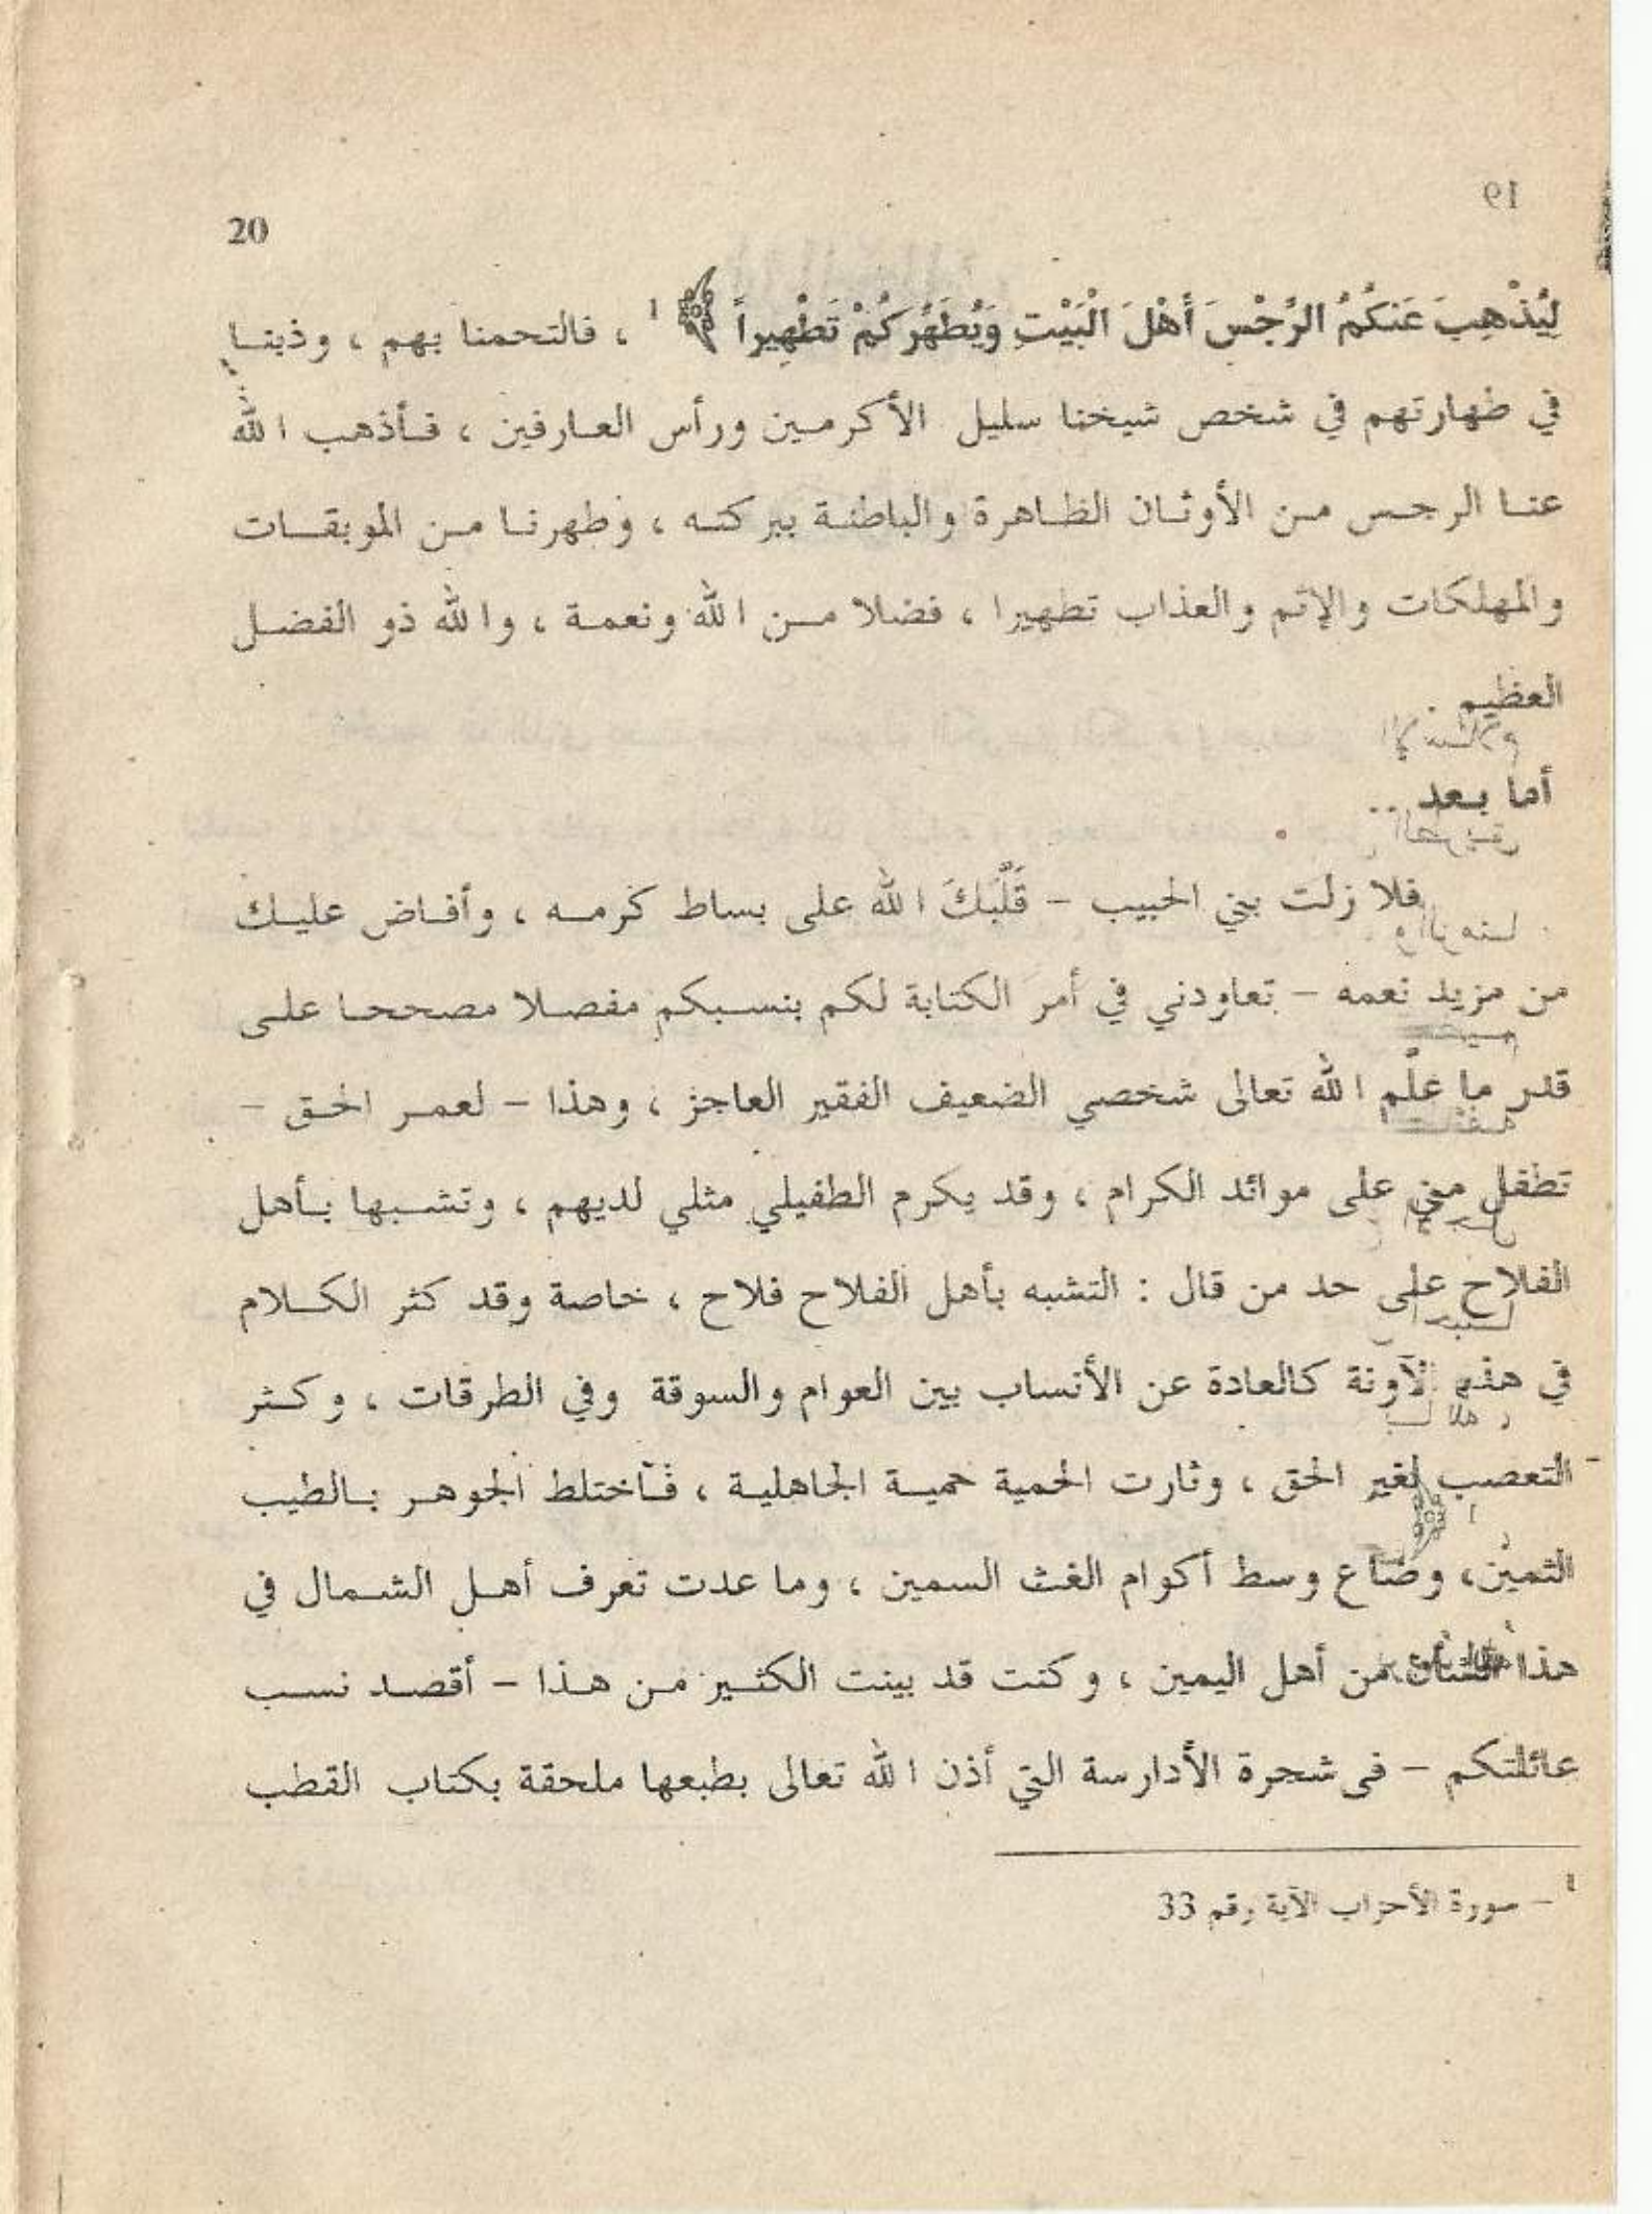 20
لِيُذْهِبَ عَنكُمُ الرِّجْسَ أَهْلَ الْبَيْتِ وَيُطَهِّرَكُمْ تَطْهِيراً ﴾ 1 ، فالتحمنا بهم ، وذبنا
في طهارتهم في شخص شيخنا سليل الأكرمين ورأس العارفين ، فأذهب الله
عنا الرجس من الأوثان الظاهرة والباطنة ببركته ، وطهرنا من الموبقات
والمهلكات والإثم والعذاب تطهيرا ، فضلا من الله ونعمة ، والله ذو الفضل
العظيم .
أما بعد ..
فلا زلت بني الحبيب – قَلَّبَكَ الله على بساط كرمه ، وأفاض عليك
من مزيد نعمه – تعاودني في أمر الكتابة لكم بنسبكم مفصلا مصححا على
قدر ما علَّم الله تعالى شخصي الضعيف الفقير العاجز ، وهذا – لعمر الحق –
تطفل مني على موائد الكرام ، وقد يكرم الطفيلي مثلي لديهم ، وتشبها بأهل
الفلاح على حد من قال : التشبه بأهل الفلاح فلاح ، خاصة وقد كثر الكلام
في هذه الآونة كالعادة عن الأنساب بين العوام والسوقة وفي الطرقات ، وكثر
التعصب لغير الحق ، وثارت الحمية حمية الجاهلية ، فاختلط الجوهر بالطيب
الثمين، وضاع وسط أكوام الغث السمين ، وما عدت تعرف أهل الشمال في
هذا الشأن من أهل اليمين ، وكنت قد بينت الكثير من هذا – أقصد نسب
عائلتكم – فى شجرة الأدارسة التي أذن الله تعالى بطبعها ملحقة بكتاب القطب
1 – سورة الأحزاب الآية رقم 33